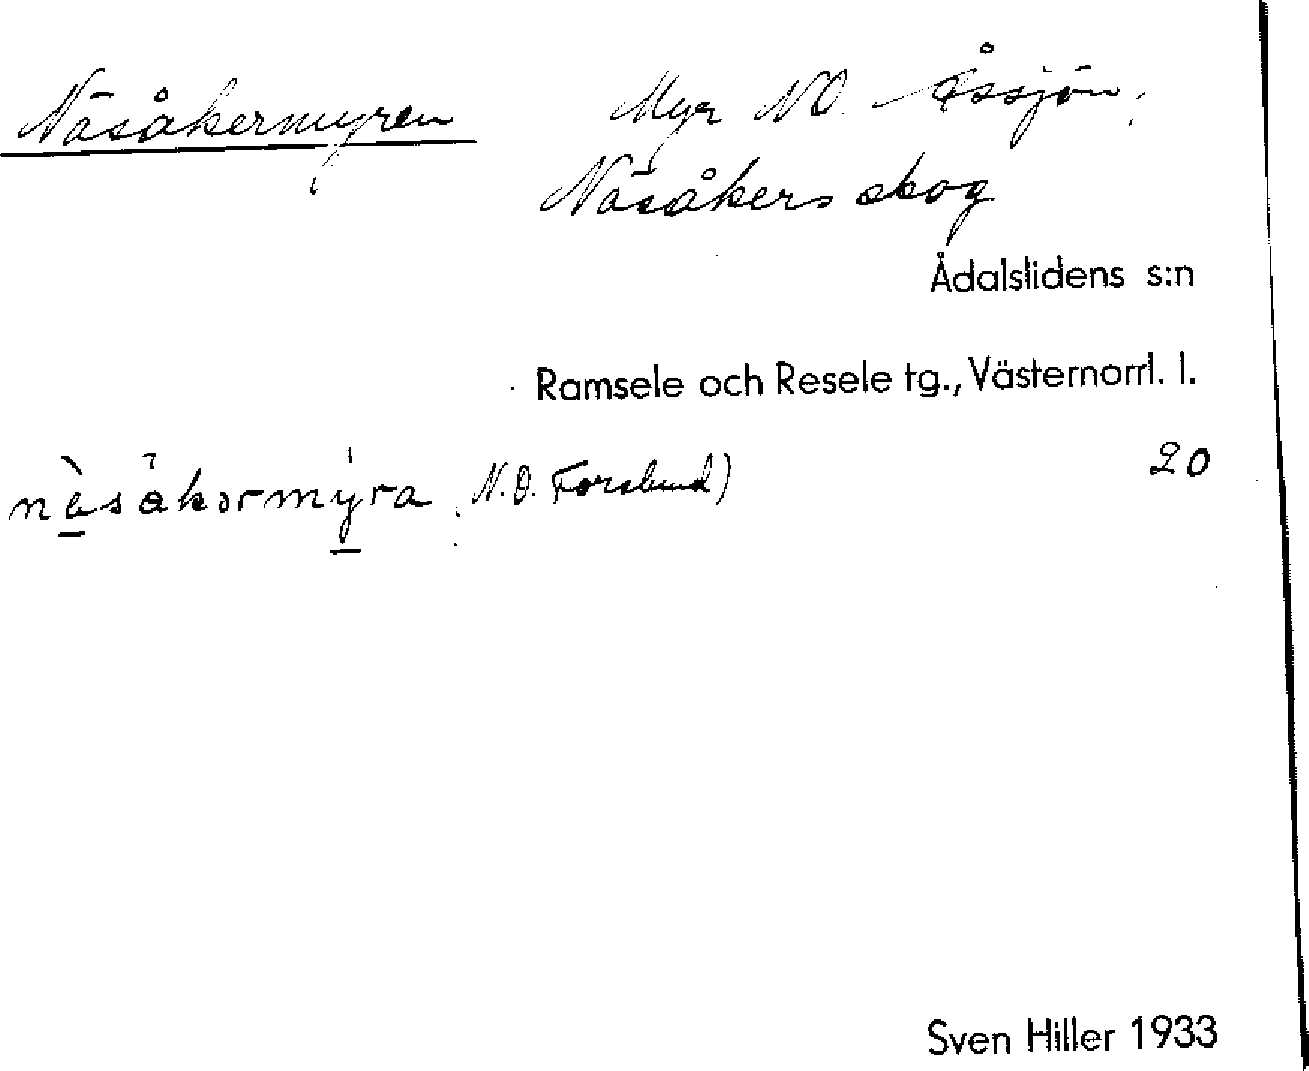 Näsåkermyren
Myr NO. Åssjön,
Näsåkers skog
Ådalslidens s:n
Ramsele och Resele tg., Västernorrl. l.
N.O. Forslund) 20
Sven Hiller 1933